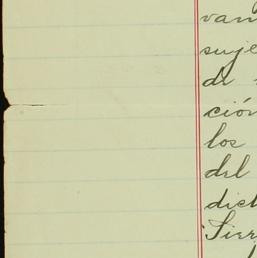 vam
suje
de
ción
los
del
dict
Sier